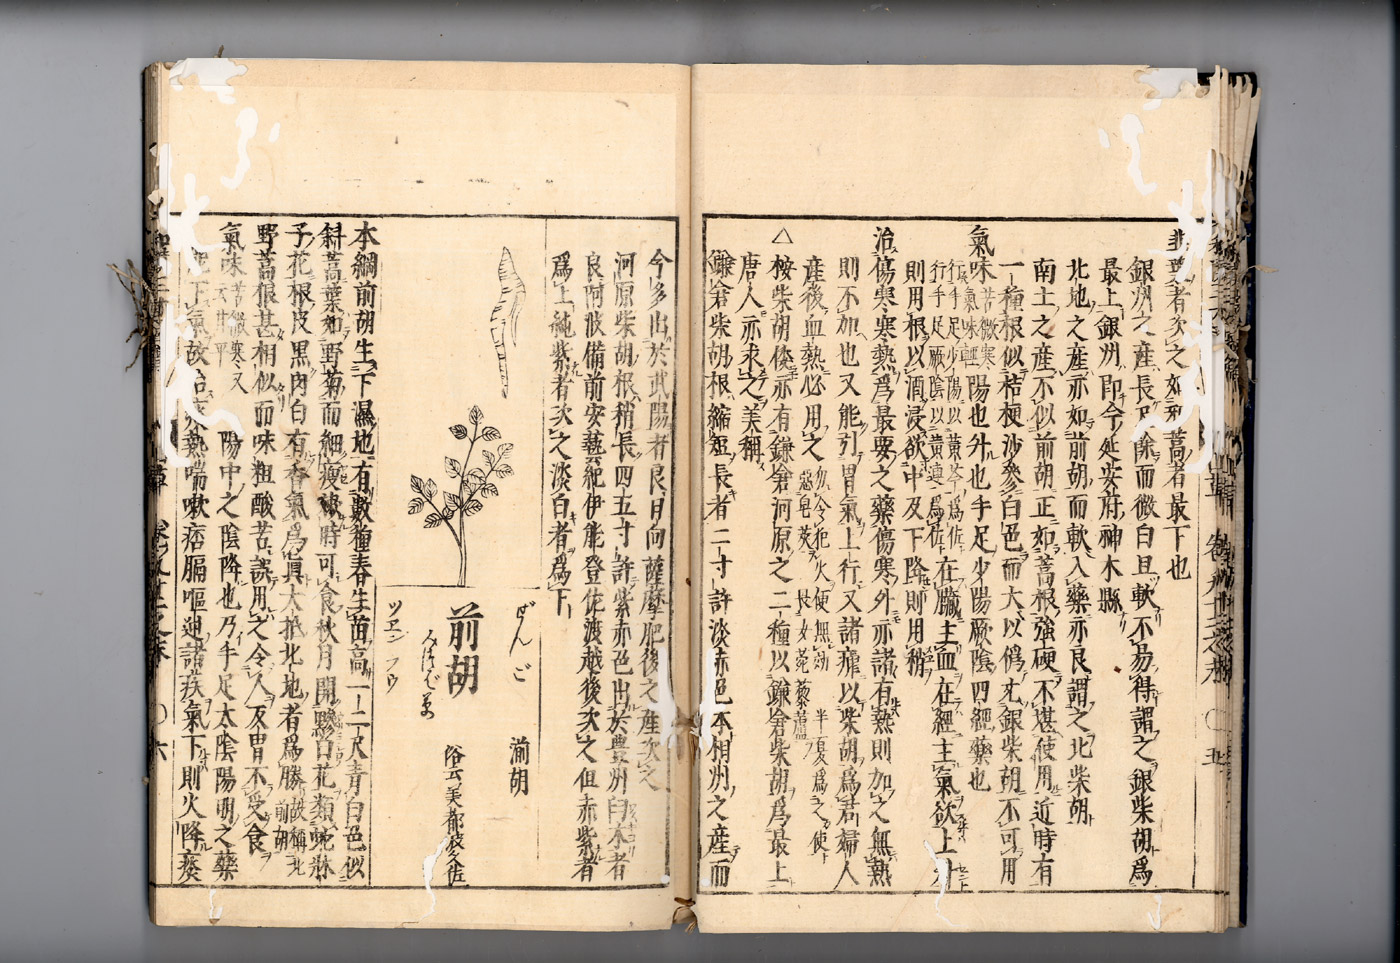 韭葉者次之如邪蒿者最下也
銀州之産長尺餘而微白且軟不易得謂之銀柴胡爲
最上銀州即今延安府神木縣
北地之産亦如前胡而軟入藥亦良謂之北柴胡
南土之産不似前胡正如蒿根強硬不堪使用近時有
一種根似桔梗沙參白色而大以僞尤銀柴胡不可用
氣味苦微寒陽也升也手足少陽厥陰四經藥也
行氣味輕
行手足少陽以黃芩爲佐
行手足厥陰以黃連爲佐
在臟主血在經主氣欲上升
則用根以酒浸欲中及下降則用稍
治傷寒寒熱爲最要之藥傷寒外亦諸有熱則加之無熱
則不加也又能引胃氣上行又諸瘧以柴胡爲君婦人
産後血熱必用之
半夏爲之使
△桉柴胡倭亦有鎌倉河原之二種以鎌倉柴胡爲最上
唐人亦求之美稱
鎌倉柴胡根縮短長者二寸許淡赤色本相州之産而
今多出於武陽者良日向薩摩肥後之産次之
河原柴胡根稍長四五寸許紫赤色出於豊州臼木者
良阿波備前安藝紀伊能登佐渡越後次之但赤紫者
爲上純紫者次之淡白者爲下
ぜんご
湔胡
前胡
ツヱン フウ
俗云美都波久佐
本綱前胡生下濕地有數種春生苗高一二尺青白色似
斜蒿葉如野菊而細瘦嫩時可食秋月開黲白花類蛇牀
子花根皮黑肉白有香氣爲眞大抵北地者爲勝故稱北前胡
野蒿根甚相似而味粗酸苦誤用之令人反胃不受食
氣味苦微寒又云甘平陽中之陰降也乃手足太陰陽明之藥
下氣故治痰熱喘嗽痞膈嘔逆諸疾氣下則火降痰